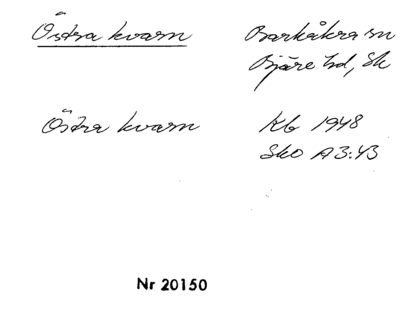 Östra kvarn Barkåkra sn
Bjäre hd, Sk
Östra kvarn Kb 1948
Sko A3:43
Nr 20150